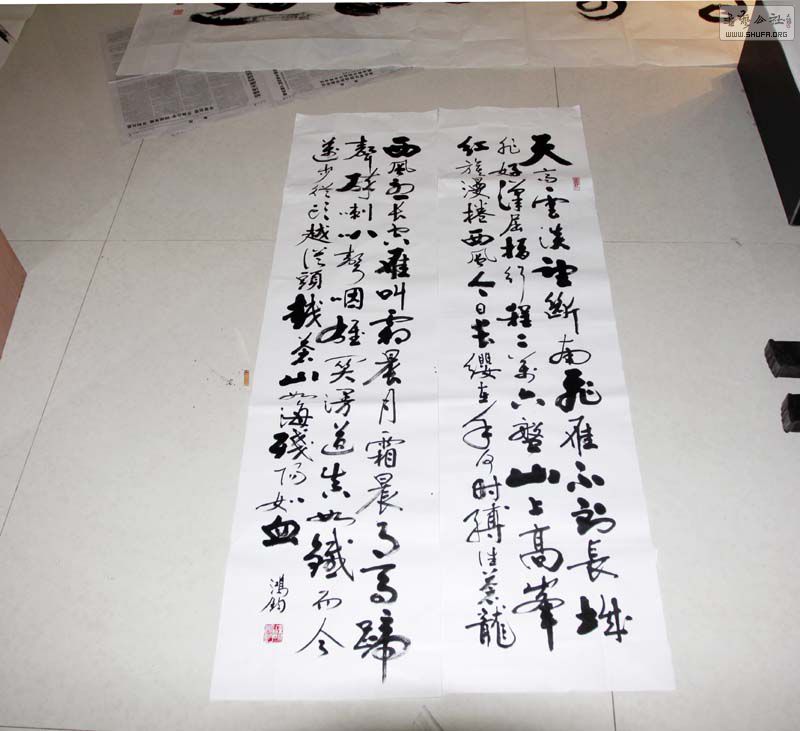 天高雲淡望斷南飛雁不到長城
非好漢屈指行程二萬六盤山上高峯
紅旗漫捲西風今日長纓在手何時縛住蒼龍
西風烈長空雁叫霜晨月霜晨月馬蹄
聲碎喇叭聲咽雄关漫道真如鐵而今
邁步從头越從頭越蒼山如海殘陽如血
鴻鈞
書藝公社
WWW.SHUFA.ORG